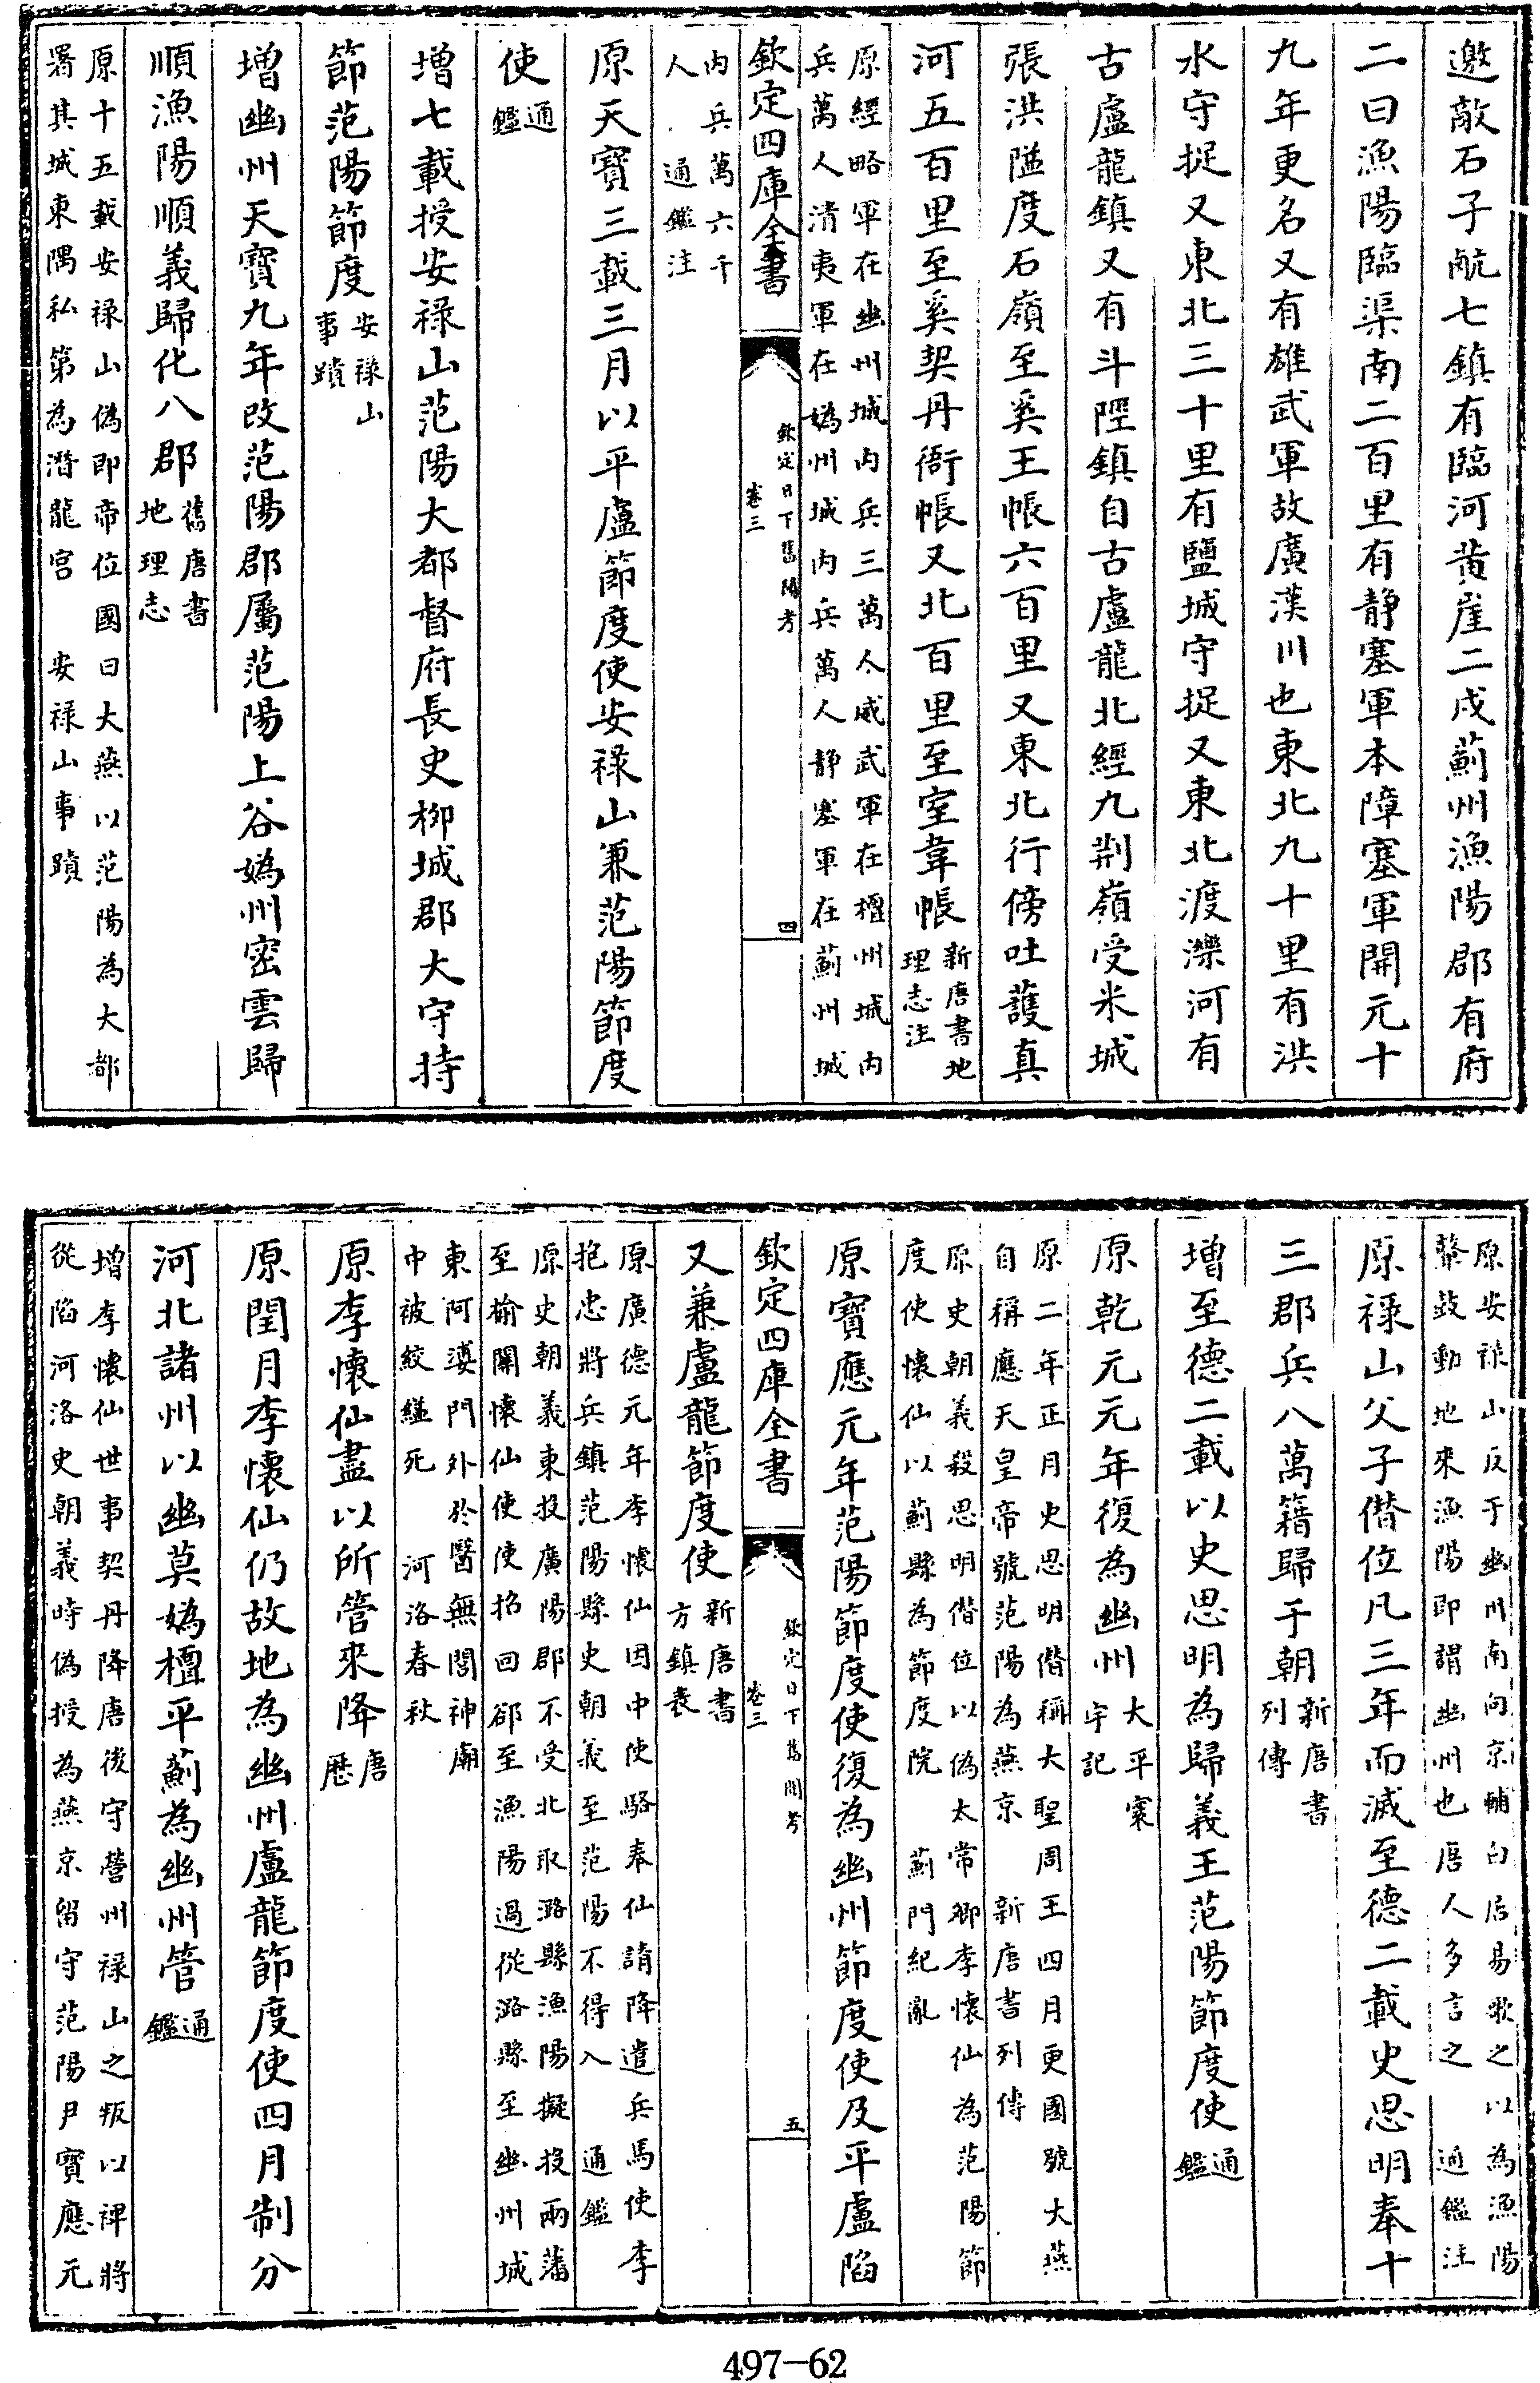 邀敵石子䴚七鎮有臨河黄崖二戍薊州漁陽郡有府
二曰漁陽臨渠南二百里有静塞軍本障塞軍開元十
九年更名又有雄武軍故廣漢川也東北九十里有洪
水守捉又東北三十里有鹽城守捉又東北渡灤河有
古盧龍鎮又有斗陘鎮自古盧龍北經九荆嶺受米城
張洪隘度石嶺至奚王帳六百里又東北行傍吐護真
河五百里至奚契丹衙帳又北百里至室韋帳
新唐書地
理志注
原經略軍在幽州城内兵三萬人威武軍在檀州城内
兵萬人清夷軍在媯州城内兵萬人静塞軍在薊州城
欽定四庫全書
欽定日下舊聞考
卷三
四
内兵萬六千
人 通鑑注
原天寶三載三月以平盧節度使安禄山兼范陽節度
使
通
鑑
增七載授安禄山范陽大都督府長史栁城郡太守持
節范陽節度
安禄山
事蹟
增幽州天寶九年改范陽郡屬范陽上谷媯州密雲歸
順漁陽順義歸化八郡
舊唐書
地理志
原十五載安禄山偽即帝位國曰大燕以范陽為大都
署其城東隅私第為潜龍宫 安禄山事蹟
原安禄山反于幽州南向京輔白居易歌之以為漁陽
鼙鼓動地來漁陽即謂幽州也唐人多言之 通鑑注
原禄山父子僭位凡三年而滅至德二載史思明奉十
三郡兵八萬籍歸于朝
新唐書
列傳
增至德二載以史思明為歸義王范陽節度使
通
鑑
原乾元元年復為幽州
太平寰
宇記
原二年正月史思明僭稱大聖周王四月更國號大燕
自稱應天皇帝號范陽為燕京 新唐書列傳
原史朝義殺思明僭位以偽太常卿李懷仙為范陽節
度使懷仙以薊縣為節度院 薊門紀亂
原寶應元年范陽節度使復為幽州節度使及平盧陷
欽定四庫全書
欽定日下舊聞考
卷三
五
又兼盧龍節度使
新唐書
方鎮表
原廣德元年李懷仙因中使駱奉仙請降遣兵馬使李
抱忠將兵鎮范陽縣史朝義至范陽不得入 通鑑
原史朝義東投廣陽郡不受北取潞縣漁陽擬投兩藩
至榆關懷仙使使招回郤至漁陽過從潞縣至幽州城
東阿婆門外於醫無閭神廟
中被絞縊死 河洛春秋
原李懷仙盡以所管來降
唐
歴
原閏月李懷仙仍故地為幽州盧龍節度使四月制分
河北諸州以幽莫媯檀平薊為幽州管
通
鑑
增李懷仙世事契丹降唐後守營州禄山之叛以禆將
從陷河洛史朝義時偽授為燕京留守范陽尹寶應元
497-62